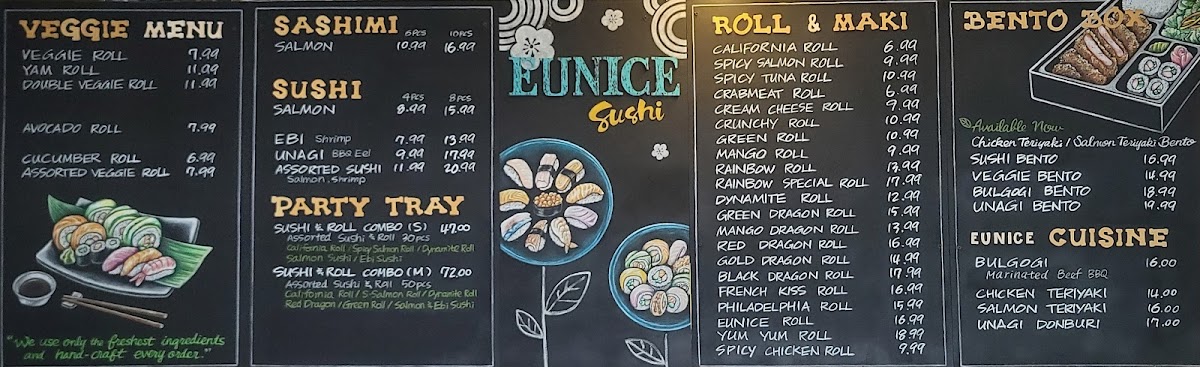 VEGGIE MENU
VEGGIE ROLL 7.99
YAM ROLL 11.99
DOUBLE VEGGIE ROLL 11.99
AVOCADO ROLL 7.99
CUCUMBER ROLL 6.99
ASSORTED VEGGIE ROLL 7.99
"We use only the freshest ingredients
and hand-craft every order."
SASHIMI 6PCS 10PCS
SALMON 10.99 16.99
SUSHI 4PCS 8PCS
SALMON 8.99 15.99
EBI Shrimp 7.99 13.99
UNAGI BBQ Eel 9.99 17.99
ASSORTED SUSHI 11.99 20.99
Salmon, Shrimp
PARTY TRAY
SUSHI & ROLL COMBO (S) 47.00
Assorted Sushi & Roll 30pcs
California Roll / Spicy Salmon Roll / Dynamite Roll
Salmon Sushi / Ebi Sushi
SUSHI & ROLL COMBO (M) 72.00
Assorted Sushi & Roll 50pcs
California Roll / S.Salmon Roll / Dynamite Roll
Red Dragon / Green Roll / Salmon & Ebi Sushi
EUNICE
Sushi
ROLL & MAKI
CALIFORNIA ROLL 6.99
SPICY SALMON ROLL 9.99
SPICY TUNA ROLL 10.99
CRABMEAT ROLL 6.99
CREAM CHEESE ROLL 9.99
CRUNCHY ROLL 10.99
GREEN ROLL 10.99
MANGO ROLL 9.99
RAINBOW ROLL 13.99
RAINBOW SPECIAL ROLL 17.99
DYNAMITE ROLL 12.99
GREEN DRAGON ROLL 15.99
MANGO DRAGON ROLL 13.99
RED DRAGON ROLL 16.99
GOLD DRAGON ROLL 14.99
BLACK DRAGON ROLL 17.99
FRENCH KISS ROLL 16.99
PHILADELPHIA ROLL 15.99
EUNICE ROLL 16.99
YUM YUM ROLL 18.99
SPICY CHICKEN ROLL 9.99
BENTO BOX
Available Now
Chicken Teriyaki / Salmon Teriyaki Bento
SUSHI BENTO 16.99
VEGGIE BENTO 14.99
BULGOGI BENTO 18.99
UNAGI BENTO 19.99
EUNICE CUISINE
BULGOGI 16.00
Marinated Beef BBQ
CHICKEN TERIYAKI 14.00
SALMON TERIYAKI 16.00
UNAGI DONBURI 17.00